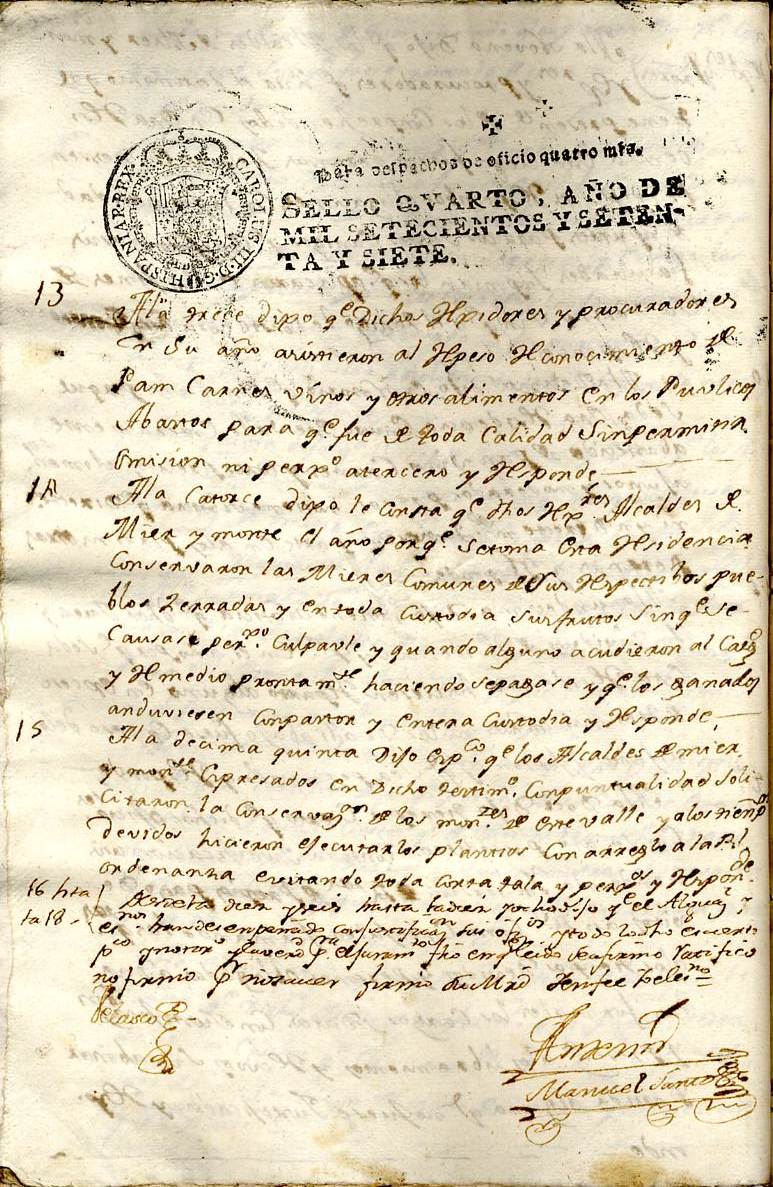 CAROLUS III D G HISPANIAR REX
Para despachos de oficio quatro mrs.
SELLO QVARTO, AÑO DE
MIL SETECIENTOS Y SETEN-
TA Y SIETE.
13
Ala trece dijo qe Dichos Rexidores y procuradores
En Su año asistieron al Repeso Reconocimiento de
Pam Carnes vinos y otros alimentos En los Puvlicos
Abastos para qe fue de toda Calidad Sinpermitir
Omision ni perxo atercero y Responde
14
Ala Catorce dijo le Consta qe dhos Alcaldes de
Mier y monte el año porqe Setoma Esta Residencia
Conservaron las Mieses Comunes de Sus Respectibos pue-
blos Zerradas y Entoda Custodia Susfrutos Sinqe Se
Causase perxo Culpavle y quando alguno acudieron al
y Remedio prontamte haciendo Sepagase y qe los ganados
anduviesen Conpastor y Entera Custodia y Responde
15
Ala decima quinta Dijo qe los Alcaldes de mier
y monte Expresados En Dicho Conpuntualidad Soli-
Citaron la Conservazon de los montes de Este valle y alos tiempos
devidos hicieron Ejecutarlos plantios Con arreglo a la Rl
ordenanza evitando toda Corta tala y perxos y Responde
16 hta
ta 18
diez y seis hasta ladiez yochodijo qe el Algual y
esnos han desempeñado sus ofizos y todo lo dho es cierto
pco y notoro juramto fho leido Seafirmo Ratifico
no firmo pr nosaver firmo Su Mrd
Velasco
Antemi
Manuel Santos